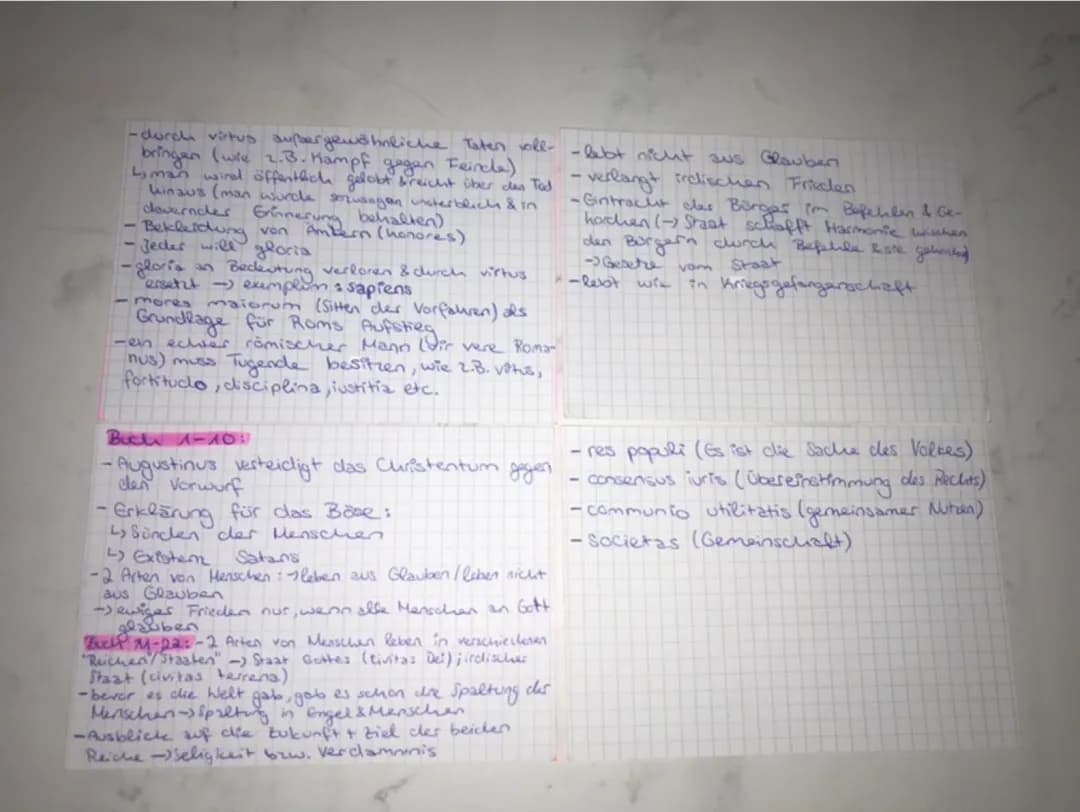 - durch virtus außergewöhnliche Taten voll-
bringen (wie z.B. Kampf gegen Feinde)
↳ man wird öffentlich gelobt & reicht über den Tod
hinaus (man wurde sozusagen unsterblich & in
dauerndes Erinnerung behalten)
- Bekleidung von Ämtern (honores)
- Jeder will gloria
- gloria an Bedeutung verloren & durch virtus
ersetzt → exemplum: sapiens
- mores maiorum (Sitten der Vorfahren) als
Grundlage für Roms Aufstieg
- ein echter römischer Mann (vir vere Roma-
nus) muss Tugende besitzen, wie z.B. virtus,
fortitudo, disciplina, iustitia etc.
- lebt nicht aus Glauben
- verlangt irdischen Frieden
- Eintracht der Bürger im Befehlen & Ge-
horchen (→ Staat schafft Harmonie zwischen
den Bürgern durch Befehle & sie gehorchen)
→ Gesetze vom Staat
- lebt wie in Kriegsgefangenschaft
Buch 1-10:
- Augustinus verteidigt das Christentum gegen
den Vorwurf
- Erklärung für das Böse:
↳ Sünden der Menschen
↳ Existenz Satans
- 2 Arten von Menschen: → leben aus Glauben / leben nicht
aus Glauben
→ ewiger Frieden nur, wenn alle Menschen an Gott
glauben
Buch 11-22: - 2 Arten von Menschen leben in verschiedenen
"Reichen/Staaten" → Staat Gottes (civitas Dei); irdischer
Staat (civitas terrena)
- bevor es die Welt gab, gab es schon die Spaltung der
Menschen → Spaltung in Engel & Menschen
- Ausblicke auf die Zukunft + Ziel der beiden
Reiche → Seligkeit bzw. Verdammnis
- res populi (Es ist die Sache des Volkes)
- consensus iuris (Übereinstimmung des Rechts)
- communio utilitatis (gemeinsamer Nutzen)
- societas (Gemeinschaft)